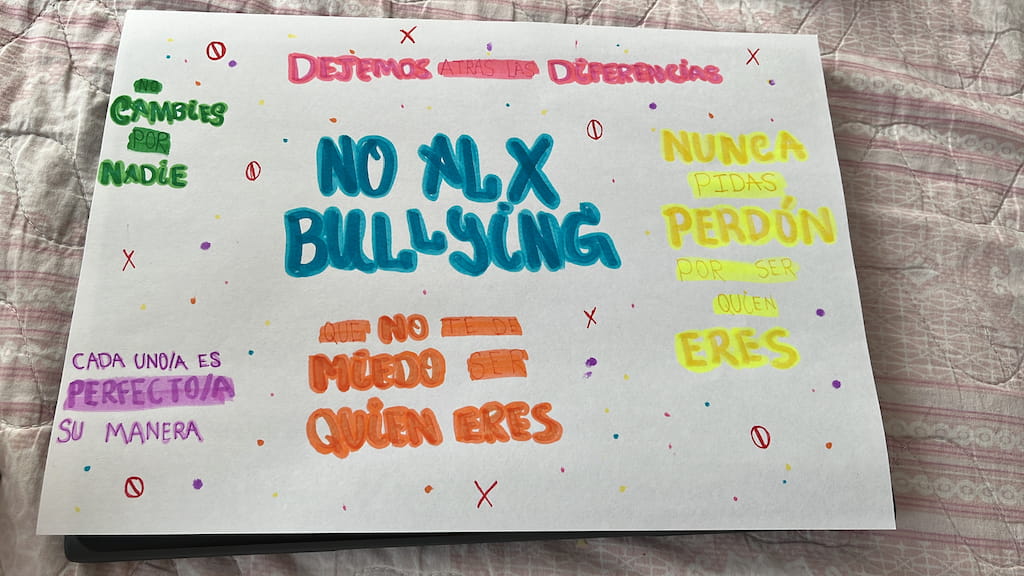 DEJEMOS ATRAS LAS DIFERENCIAS
NO
CAMBIES
POR
NADIE
NO AL X
BULLYING
NUNCA
PIDAS
PERDÓN
POR SER
QUIEN
ERES
QUE NO TE DE
MIEDO SER
QUIEN ERES
CADA UNO/A ES
PERFECTO/A
SU MANERA